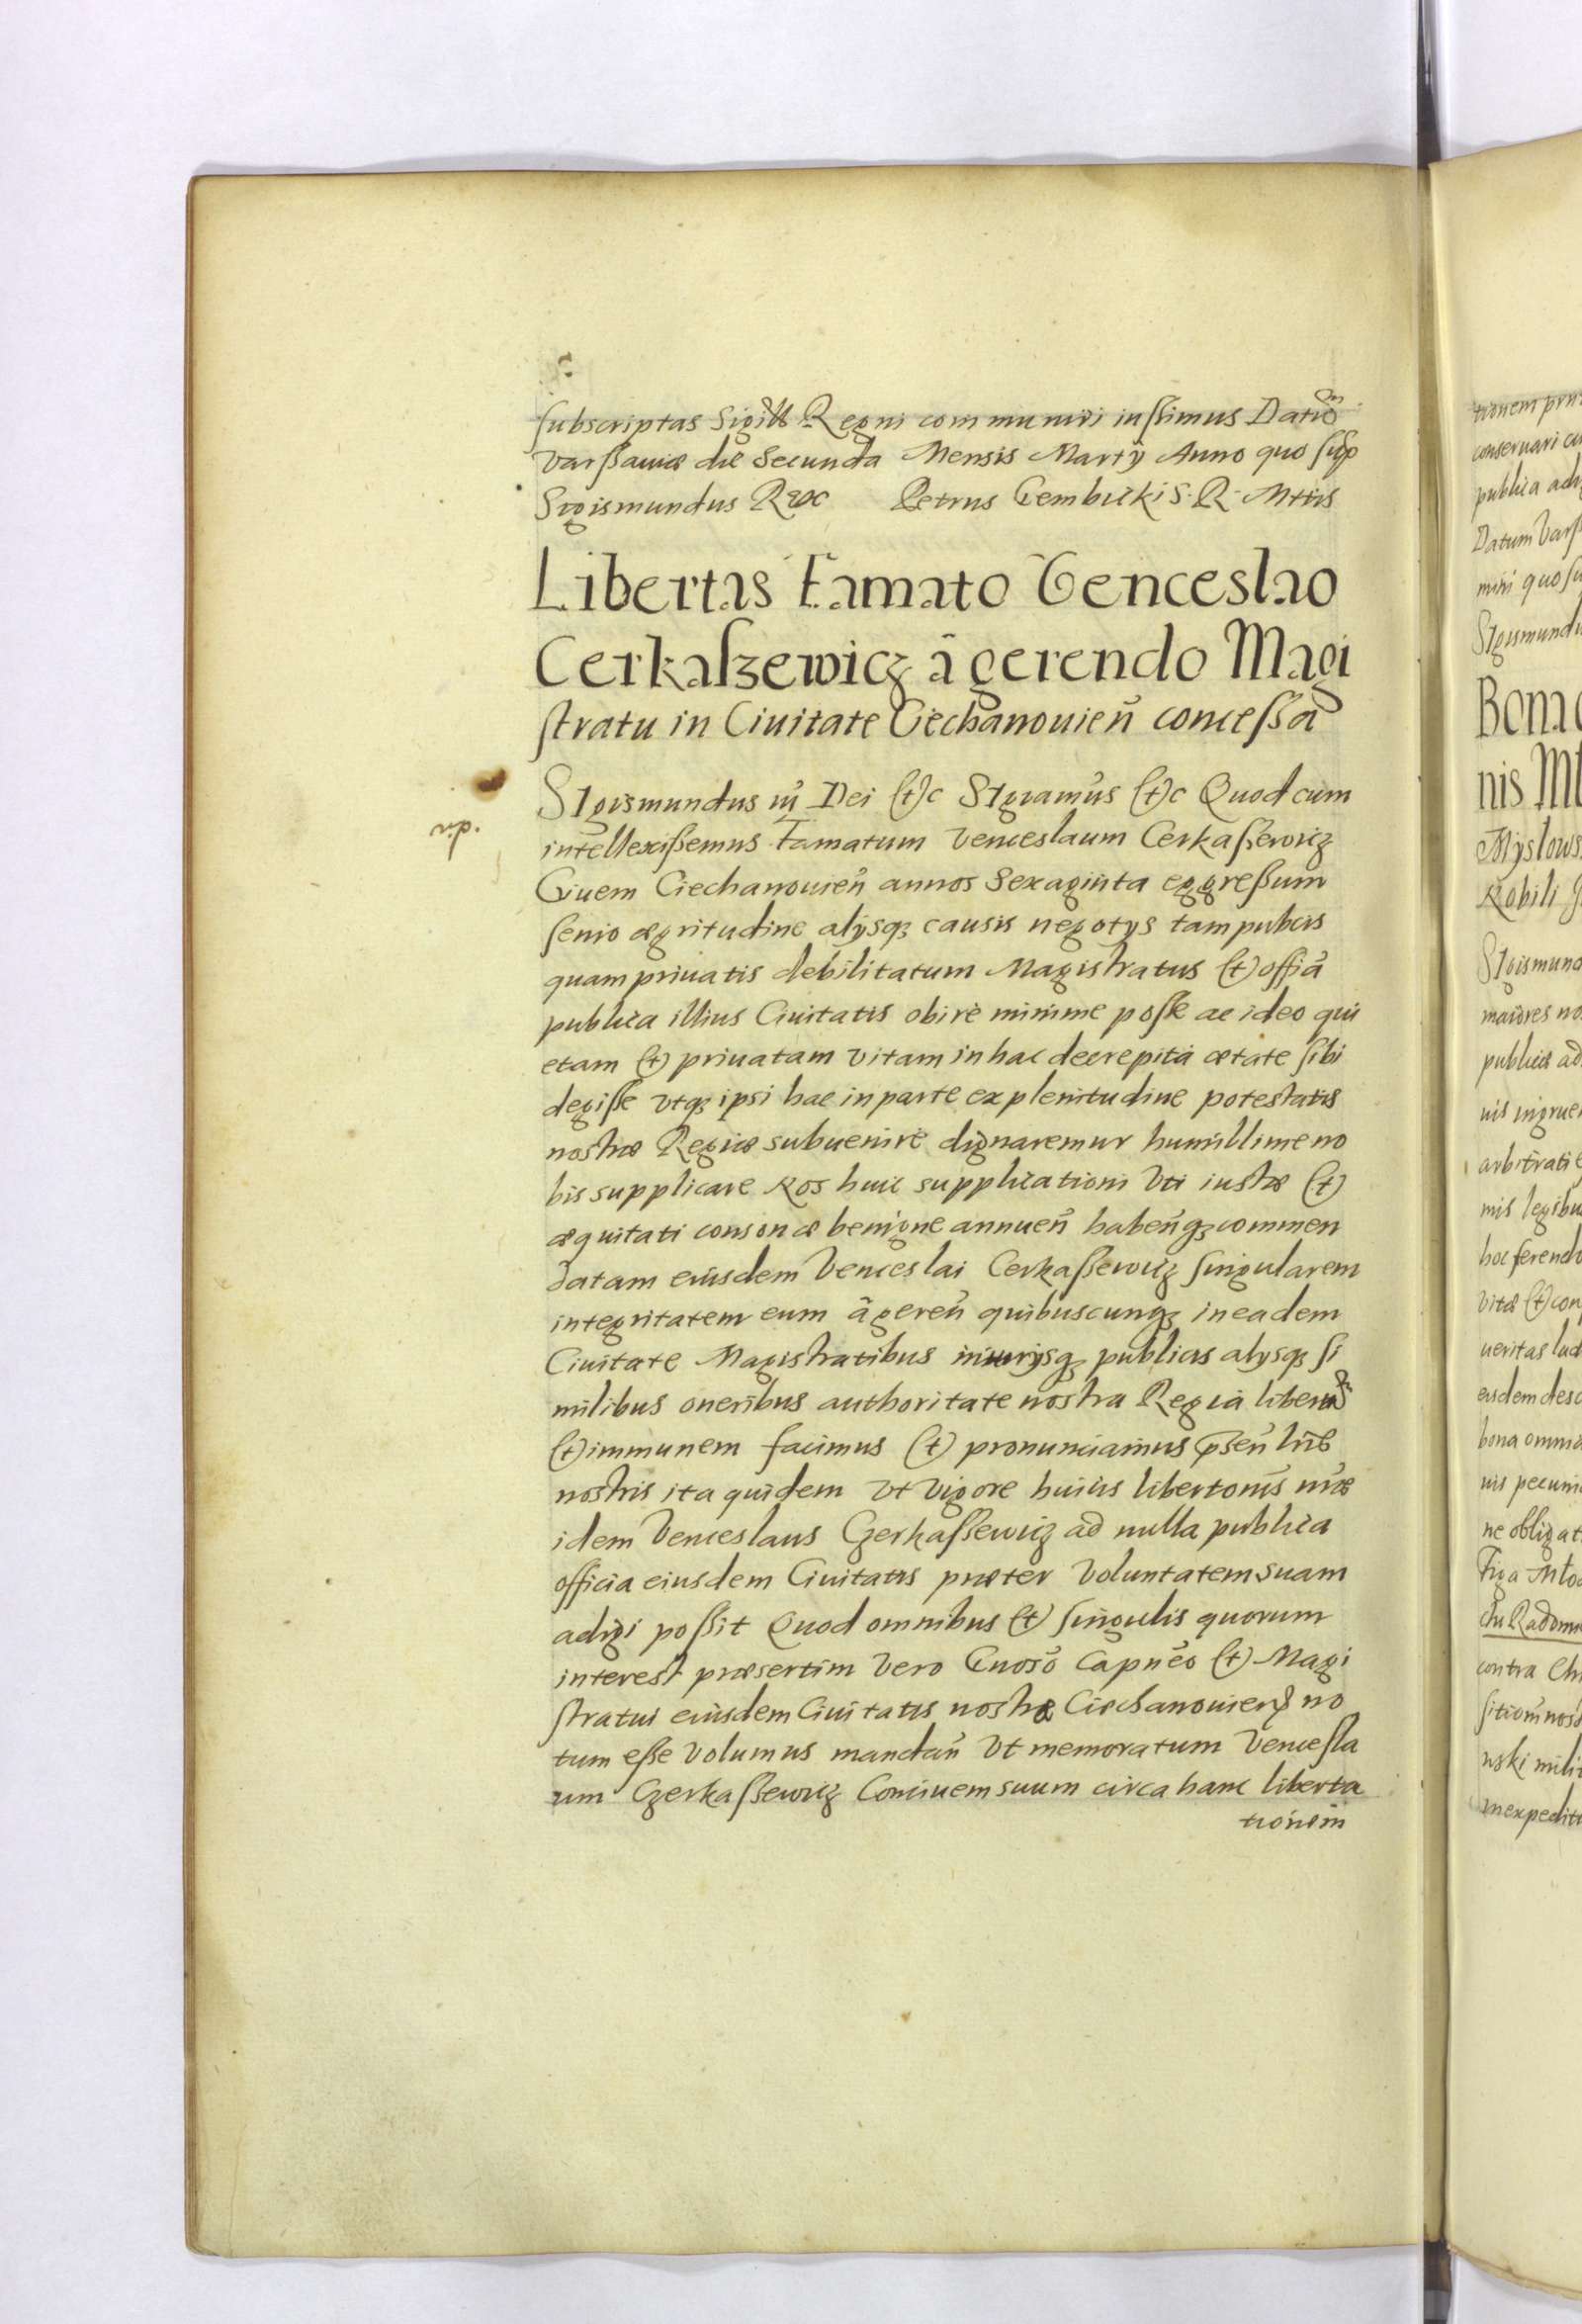 subscriptas Sigill Regni communiri iussimus Datũ
Varssauiæ die Secunda Mensis Martÿ Anno quo sup
Sigismundus Rex Petrus Gembicki S. R. Mttis
Libertas Famato Venceslao
Cerkaszewicz â gerendo Magi
stratu in Ciuitate Ciechanouieñ concessa
Sigismundus iij Dei etc Sigñamus etc Quod cum
intellexissemus Famatum Venceslaum Cerkassewicz
Ciuem Ciechanouieñ annos Sexaginta eggressum
senio ægritudine alÿsq3 causis negotÿs tam pubcis
quam priuatis debilitatum Magistratus et officia
publica illius Ciuitatis obire minime posse ac ideo qui
etam et priuatam vitam in hac decrepita ætate sibi
degisse vtq3 ipsi hac in parte ex plenitudine potestatis
nostræ Regiæ subuenire dignaremur humillime no
bis supplicare Nos huic supplicationi Vti iustæ et
æquitati consonæ benigne annueñ habeñq3 commen
datam eiusdem Venceslai Cerkassewicz singularem
integritatem eum â gereñ quibuscunq3 in eadem
Ciuitate Magistratibus publicis alÿsq3 si
milibus oneribus authoritate nostra Regia liberũ
et immunem facimus et pronunciamus p̃señ lr̃is
nostris ita quidem vt vigore huius libertonis nr̃æ
idem Venceslaus Czerkassewicz ad nulla publica
officia eiusdem Ciuitatis præter Voluntatem suam
adigi possit Quod omnibus et singulis quorum
interest præsertim vero Gñoso Capñeo et Magi
stratui eiusdem Ciuitatis nostræ Ciechanouieñ no
tum esse volumus mandañ Vt memoratum Vencesla
um Czerkassewicz Conciuem suum circa hanc liberta
tionem